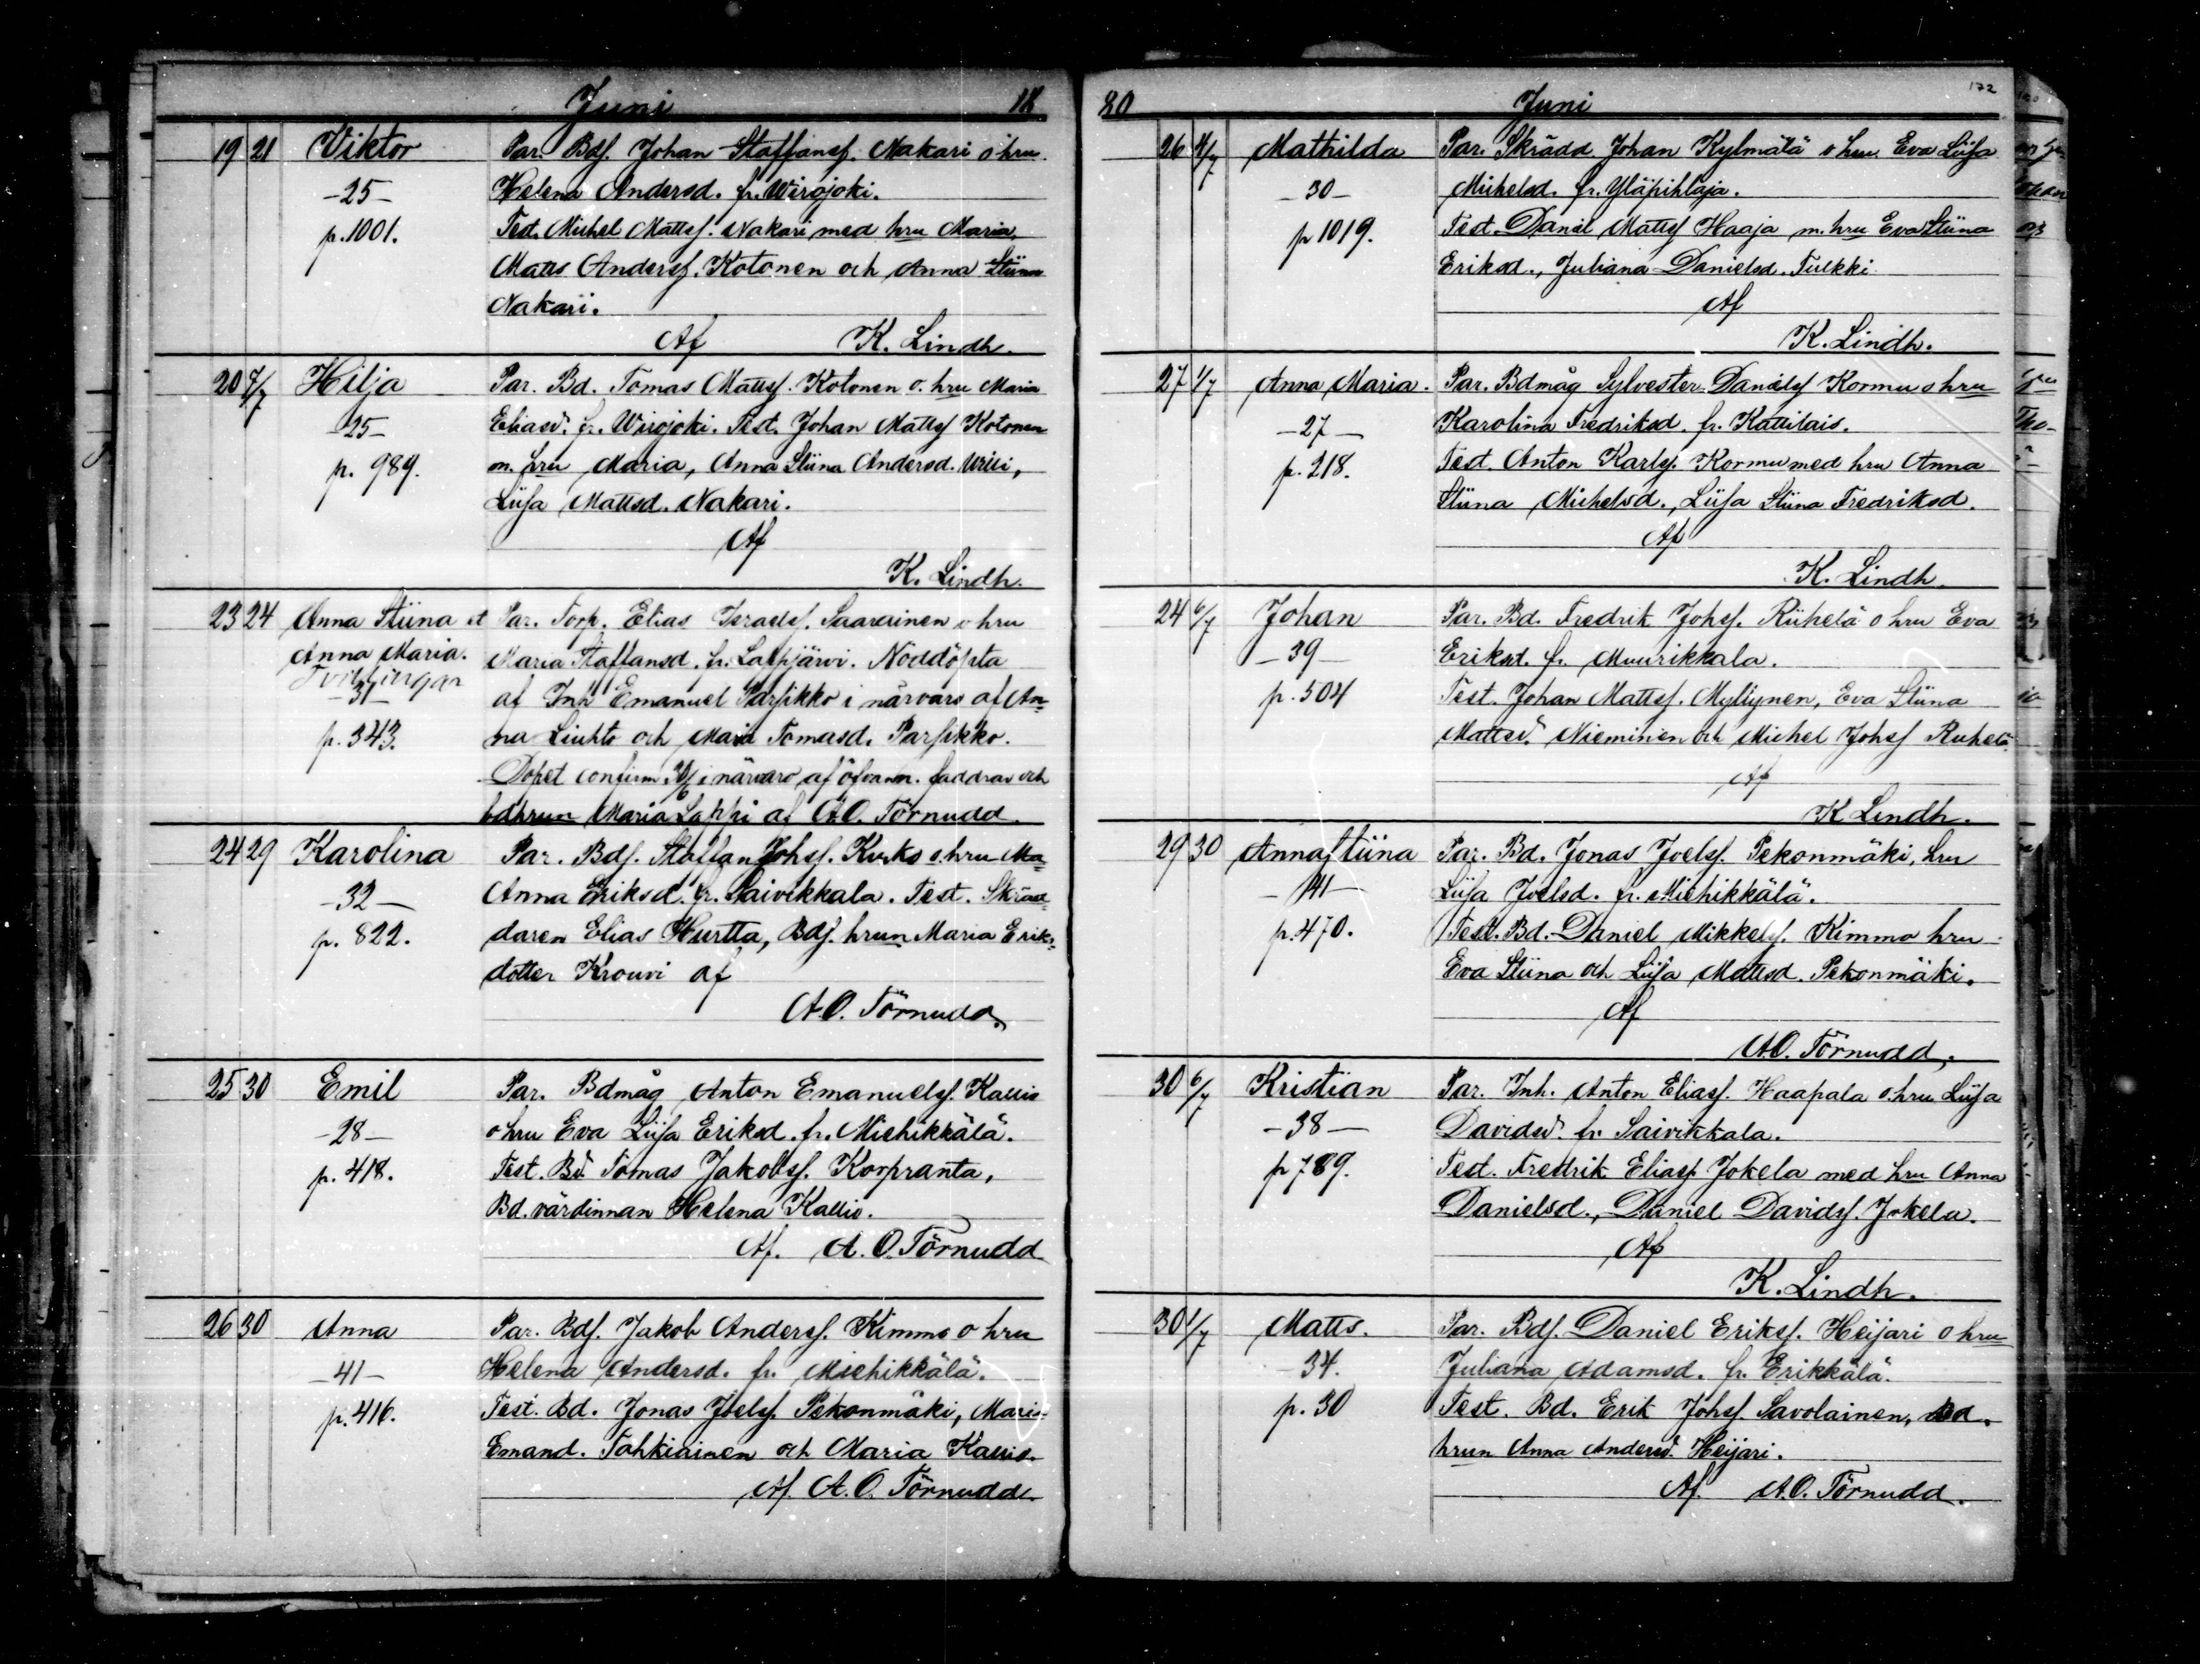 Juni 18
19 21 Viktor Par. Bdf. Johan Staffansf. Nakari o hru
-25- Helena Andersd. fr. Wirojoki.
p. 1001. Test. Michel Mattsf. Nakari med hru Maria
Matts Andersf. Kotonen och Anna Stiina
Nakari.
Af K. Lindh.
20 4/7 Hilja Par. Bd. Tomas Mattsf. Kotonen o. hru Maria
-25- Eliasd. fr. Wirojoki. Test. Johan Mattsf Kotonen
p. 989. m. hru Maria, Anna Stiina Andersd. Willi,
Liisa Mattsd. Nakari.
Af
K. Lindh.
23 24 Anna Stiina et Par. Torp. Elias Israelsf. Saarainen o hru
Anna Maria. Maria Staffansd. fr. Laapjärvi. Nöddöpta
Tvillingar
-31- af Inh Emanuel Parsikko i närvaro af An-
p. 343. na Liuhto och Maria Tomasd. Parsikko.
Dopet confirm i närvaro af ofvann. faddrar och
bdhrun Maria Lappi af A.O. Törnudd.
24 29 Karolina Par. Bdf. Staffan Johsf. Kurko o. hru Ma-
-32- Anna Eriksd. fr. Saivikkala. Test. Skräd-
p. 822. daren Elias Hurtta, Bdf. hrun Maria Eriks-
dotter Krouvi af
A.O. Törnudd.
25 30 Emil Par. Bdmåg Anton Emanuelsf. Kallio
-28- o hru Eva Liisa Eriksd. fr. Miehikkälä.
p. 418. Test. Bd. Tomas Jakobsf. Korpranta,
Bd. värdinnan Helena Kallio.
Af. A. O. Törnudd
26 30 Anna Par. Bdf. Jakob Andersf. Kimmo o hru
-41- Helena Andersd. fr. Miehikkälä.
p. 416. Test. Bd. Jonas Joelsf. Pekonmäki, Maria
Emand. Tahkiainen och Maria Kallio.
Af. A. O. Törnudd.
80 Juni 172
26 4/7 Mathilda Par. Skrädd Johan Kylmälä o hru Eva Liisa
-30- Michelsd. fr. Yläpihlaja.
p 1019. Test. Daniel Mattsf Haaja m. hru Eva Stiina
Eriksd., Juliana Danielsd. Tulkki.
Af
K. Lindh.
27 1/7 Anna Maria. Par. Bdmåg Sylvester Danielsf Kormu o hru
-27- Karolina Fredriksd. fr. Kattilais.
p. 218. Test. Anton Karlsf. Kormu med hru Anna
Stiina Michelsd., Liisa Stiina Fredriksd.
Af
K. Lindh.
24 6/7 Johan Par. Bd. Fredrik Johsf. Riihelä o hru Eva
-39- Eriksd. fr Muurikkala.
p. 504 Test. Johan Mattsf. Myllynen, Eva Stiina
Mattsd. Nieminen och Michel Johsf Riihelä.
Af
K Lindh.
29 30 Anna Stiina Par. Bd. Jonas Joelsf. Pekonmäki, hru
-41- Liisa Joelsd. fr. Miehikkälä.
p. 470. Test. Bd. Daniel Mikkelsf. Kimmo hru
Eva Stiina och Liisa Mattsd. Pekonmäki.
Af
A.O. Törnudd.
30 6/7 Kristian Par. Inh. Anton Eliasf. Haapala o. hru Liisa
-38- Davidsd. fr Saivikkala.
p 789. Test. Fredrik Eliasf Jokela med hru Anna
Danielsd., Daniel Davidsf. Jokela.
Af
K. Lindh.
30 1/7 Matts. Par. Bdf. Daniel Eriksf. Heijari o hru
-34. Juliana Adamsd. fr. Erikkälä.
p. 30 Test. Bd. Erik Johsf. Savolainen, Bd.
hrun Anna Andersd. Heijari.
Af. A.O. Törnudd.